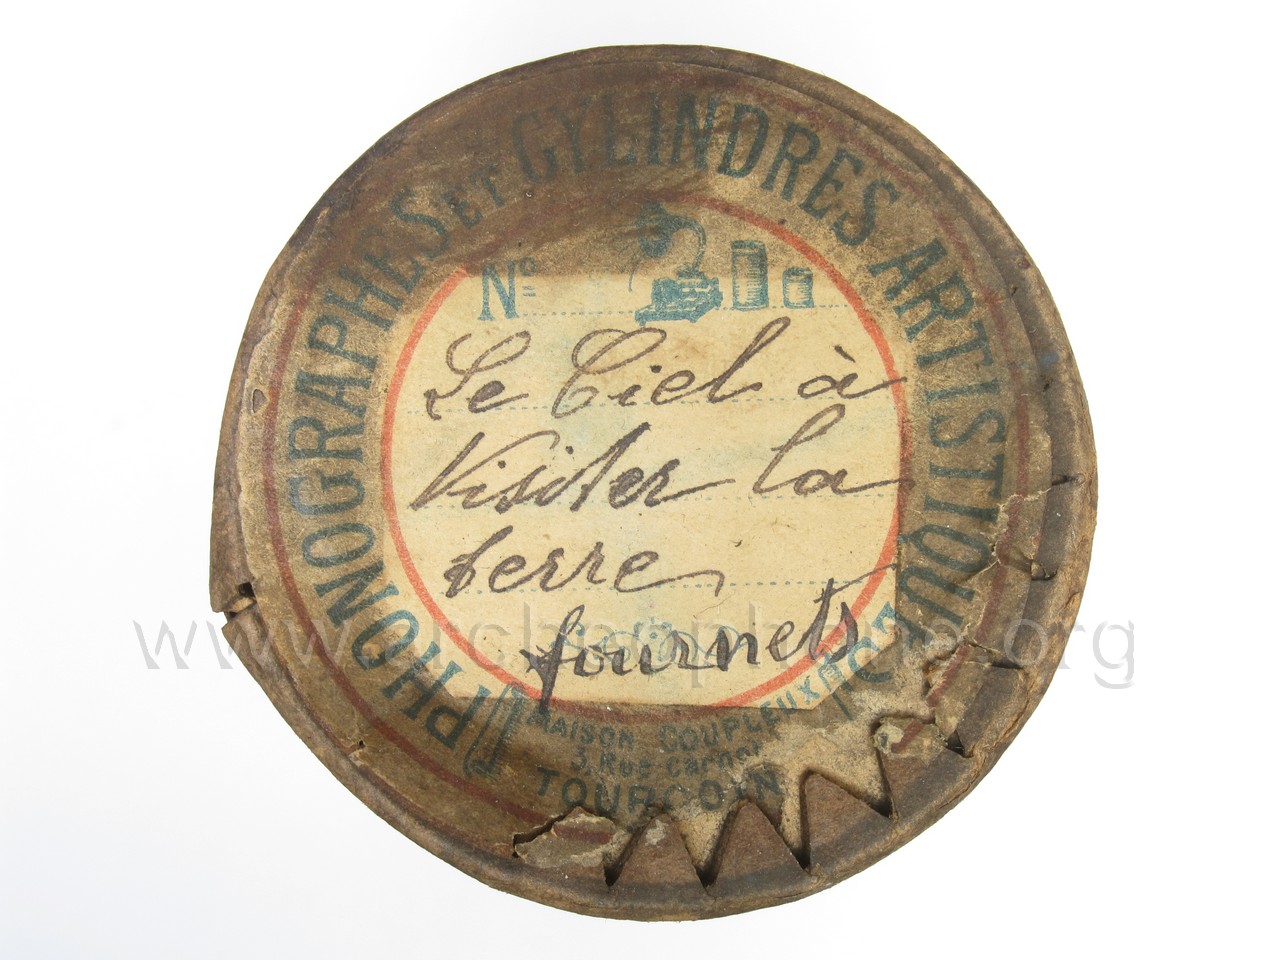 PHONOGRAPHES ET CYLINDRES ARTISTIQUES
Nº
Le Ciel à
Visiter la
terre
fournets
MAISON COUPLEUX
3, Rue Carnot
TOURCOING
www.archeophone.org